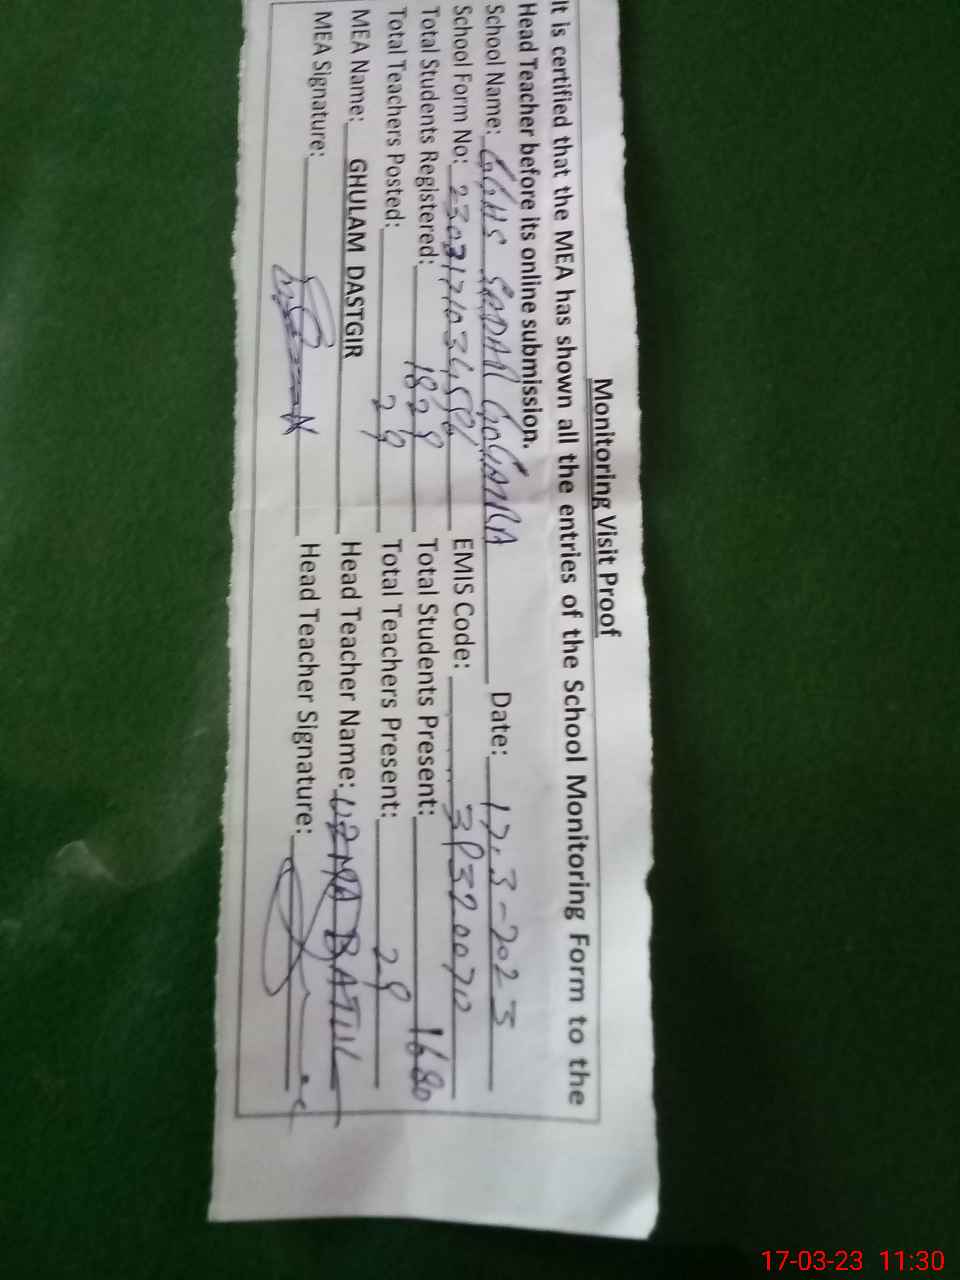 Monitoring Visit Proof
It is certified that the MEA has shown all the entries of the School Monitoring Form to the
Head Teacher before its online submission.
School Name: GGHS SADAR GOGERA Date: 17.3-2023
School Form No: EMIS Code: 39320070
Total Students Registered: 1829 Total Students Present: 1680
Total Teachers Posted: 29 Total Teachers Present: 29
MEA Name: GHULAM DASTGIR Head Teacher Name: UZMA BATUL
MEA Signature: Head Teacher Signature:
17-03-23 11:30